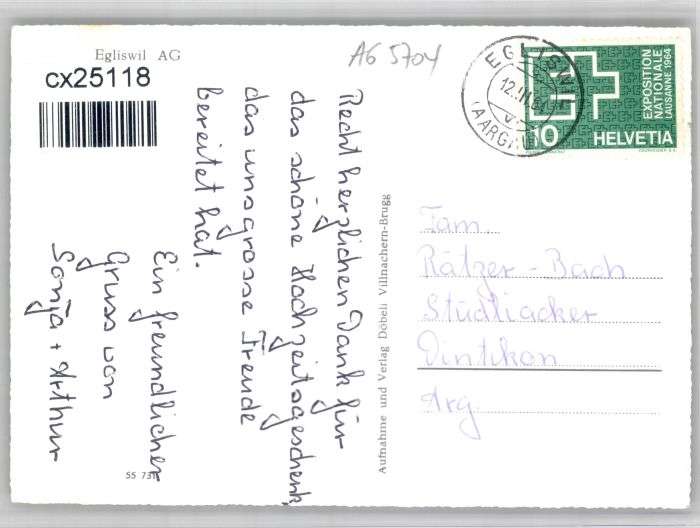 Egliswil AG
cx25118
AG 5704
EGLISWIL
12.
(AARGAU)
EXPOSITION
NATIONALE
LAUSANNE 1964
10 HELVETIA
Recht herzlichen Dank für
das schöne Hochzeitsgeschenk,
das uns grosse Freude
bereitet hat.
Ein freundlicher
Gruss von
Sonja + Arthur
Aufnahme und Verlag Döbeli Villnachern-Brugg
Fam.
Rätzer-Bach
Stüdliacker
Dintikon
Arg.
55 73